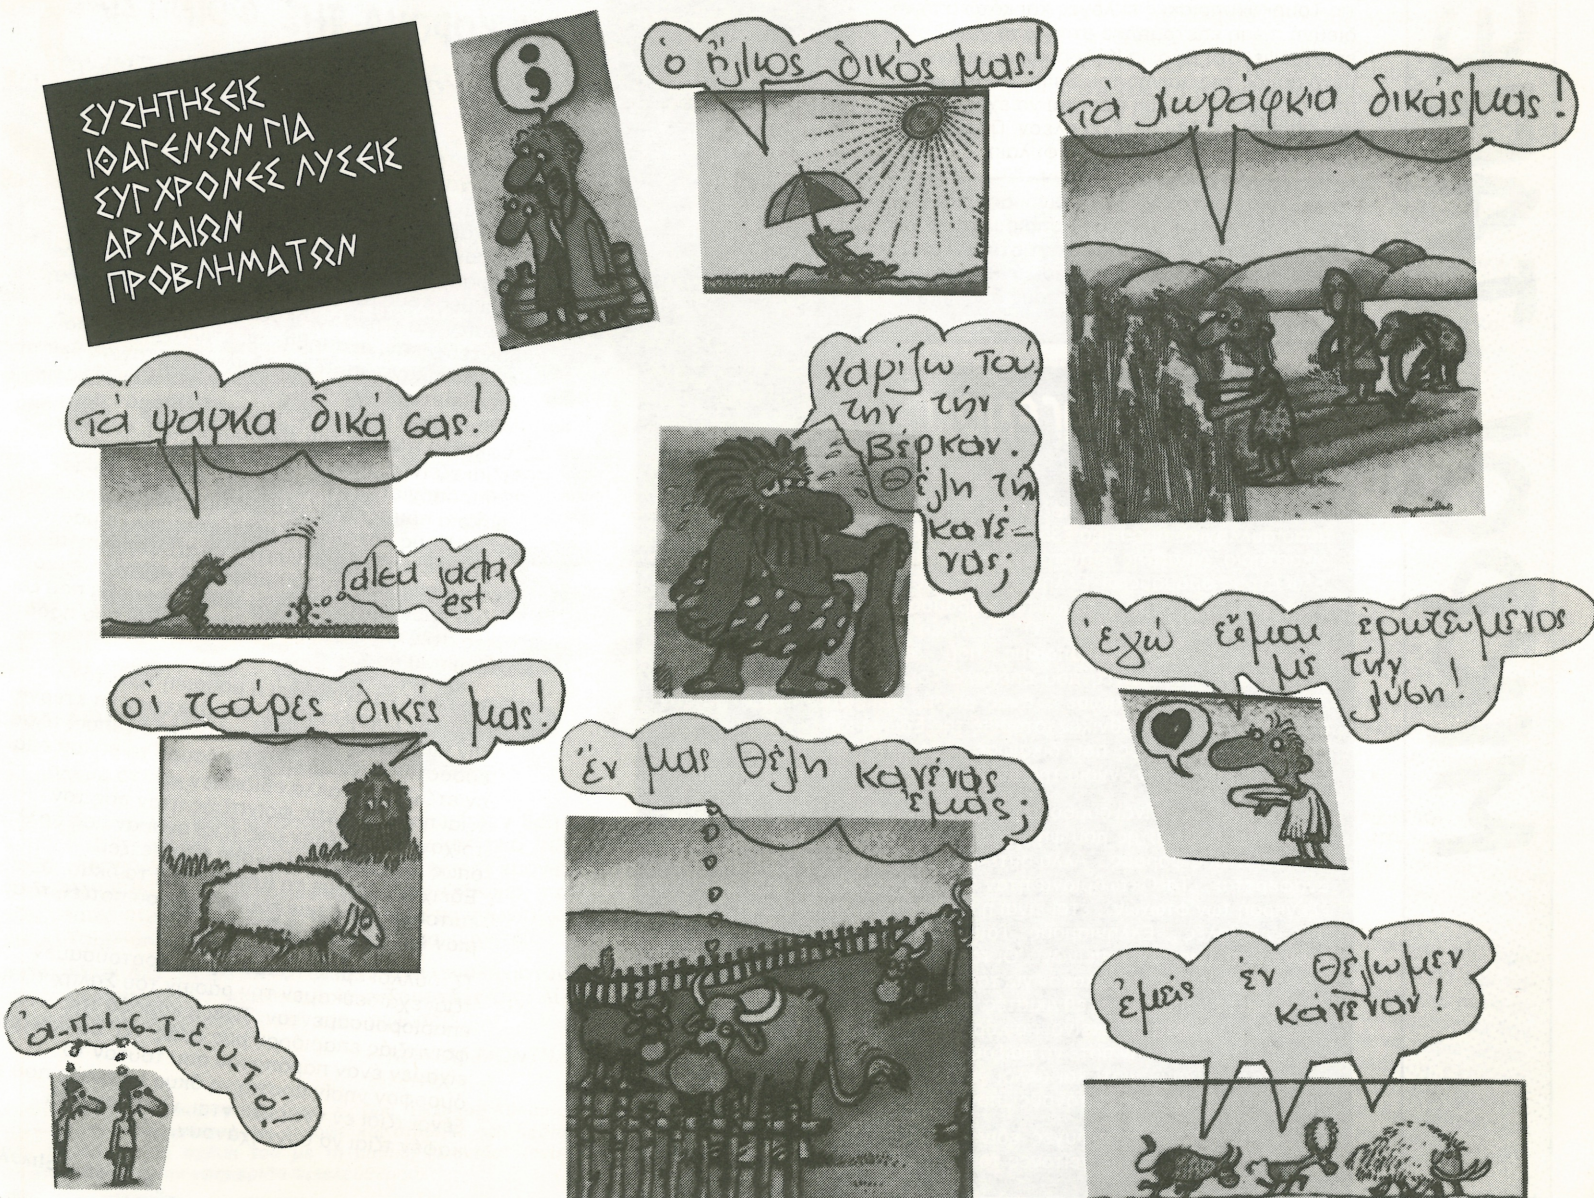 ΣΥΖΗΤΗΣΕΙΣ
ΙΘΑΓΕΝΩΝ ΓΙΑ
ΣΥΓΧΡΟΝΕΣ ΛΥΣΕΙΣ
ΑΡΧΑΙΩΝ
ΠΡΟΒΛΗΜΑΤΩΝ
;
ὁ ἥλιος δικός μας!
τά χωράφκια δικάς μας!
τά ψάρκα δικά σας!
alea jacta
est
χαρίζω τού
την τήν
βέρκαν.
Θέλη τη
κανέ-
νας;
ἐγώ εἶμαι ἐρωτευμένος
μέ τήν
λύση!
οἱ τσάρες δικές μας!
ἔν μας θέλη κανένας
ἐμας;
ἐμείς ἐν θέλωμεν
κάνεναν!
ἀ-π-ι-σ-τ-ε-υ-τ-ο!